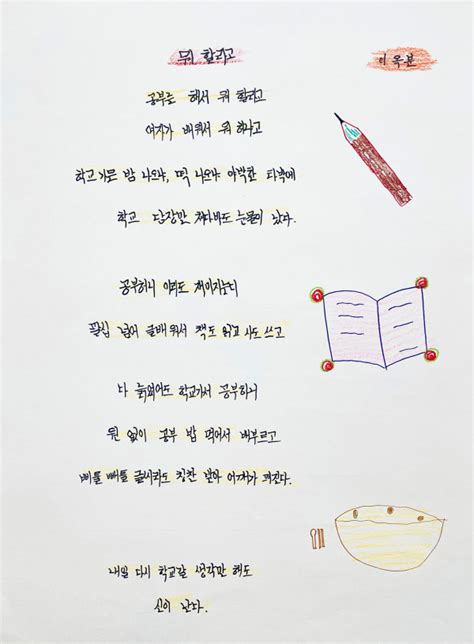 뭐 할라고
이옥분
공부는 해서 뭐 할라고
여자가 배워서 뭐 하냐고
학교가믄 밥 나오냐, 떡 나오냐 야박한 타박에
학교 담장만 쳐다봐도 눈물이 났다.
공부하니 이리도 재미지는디
팔십 넘어 글배워서 책도 읽고 시도 쓰고
나 늙었어도 학교가서 공부하니
원 없이 공부 밥 먹어서 배부르고
삐뚤 빼뚤 글씨라도 칭찬 받아 어깨가 펴진다.
내일 다시 학교갈 생각만 해도
신이 난다.